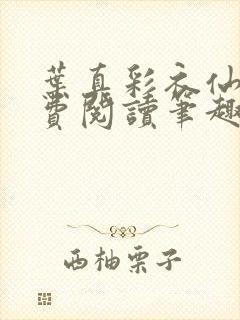 葉真彩衣仙
費閱讀筆趣
西柚栗子